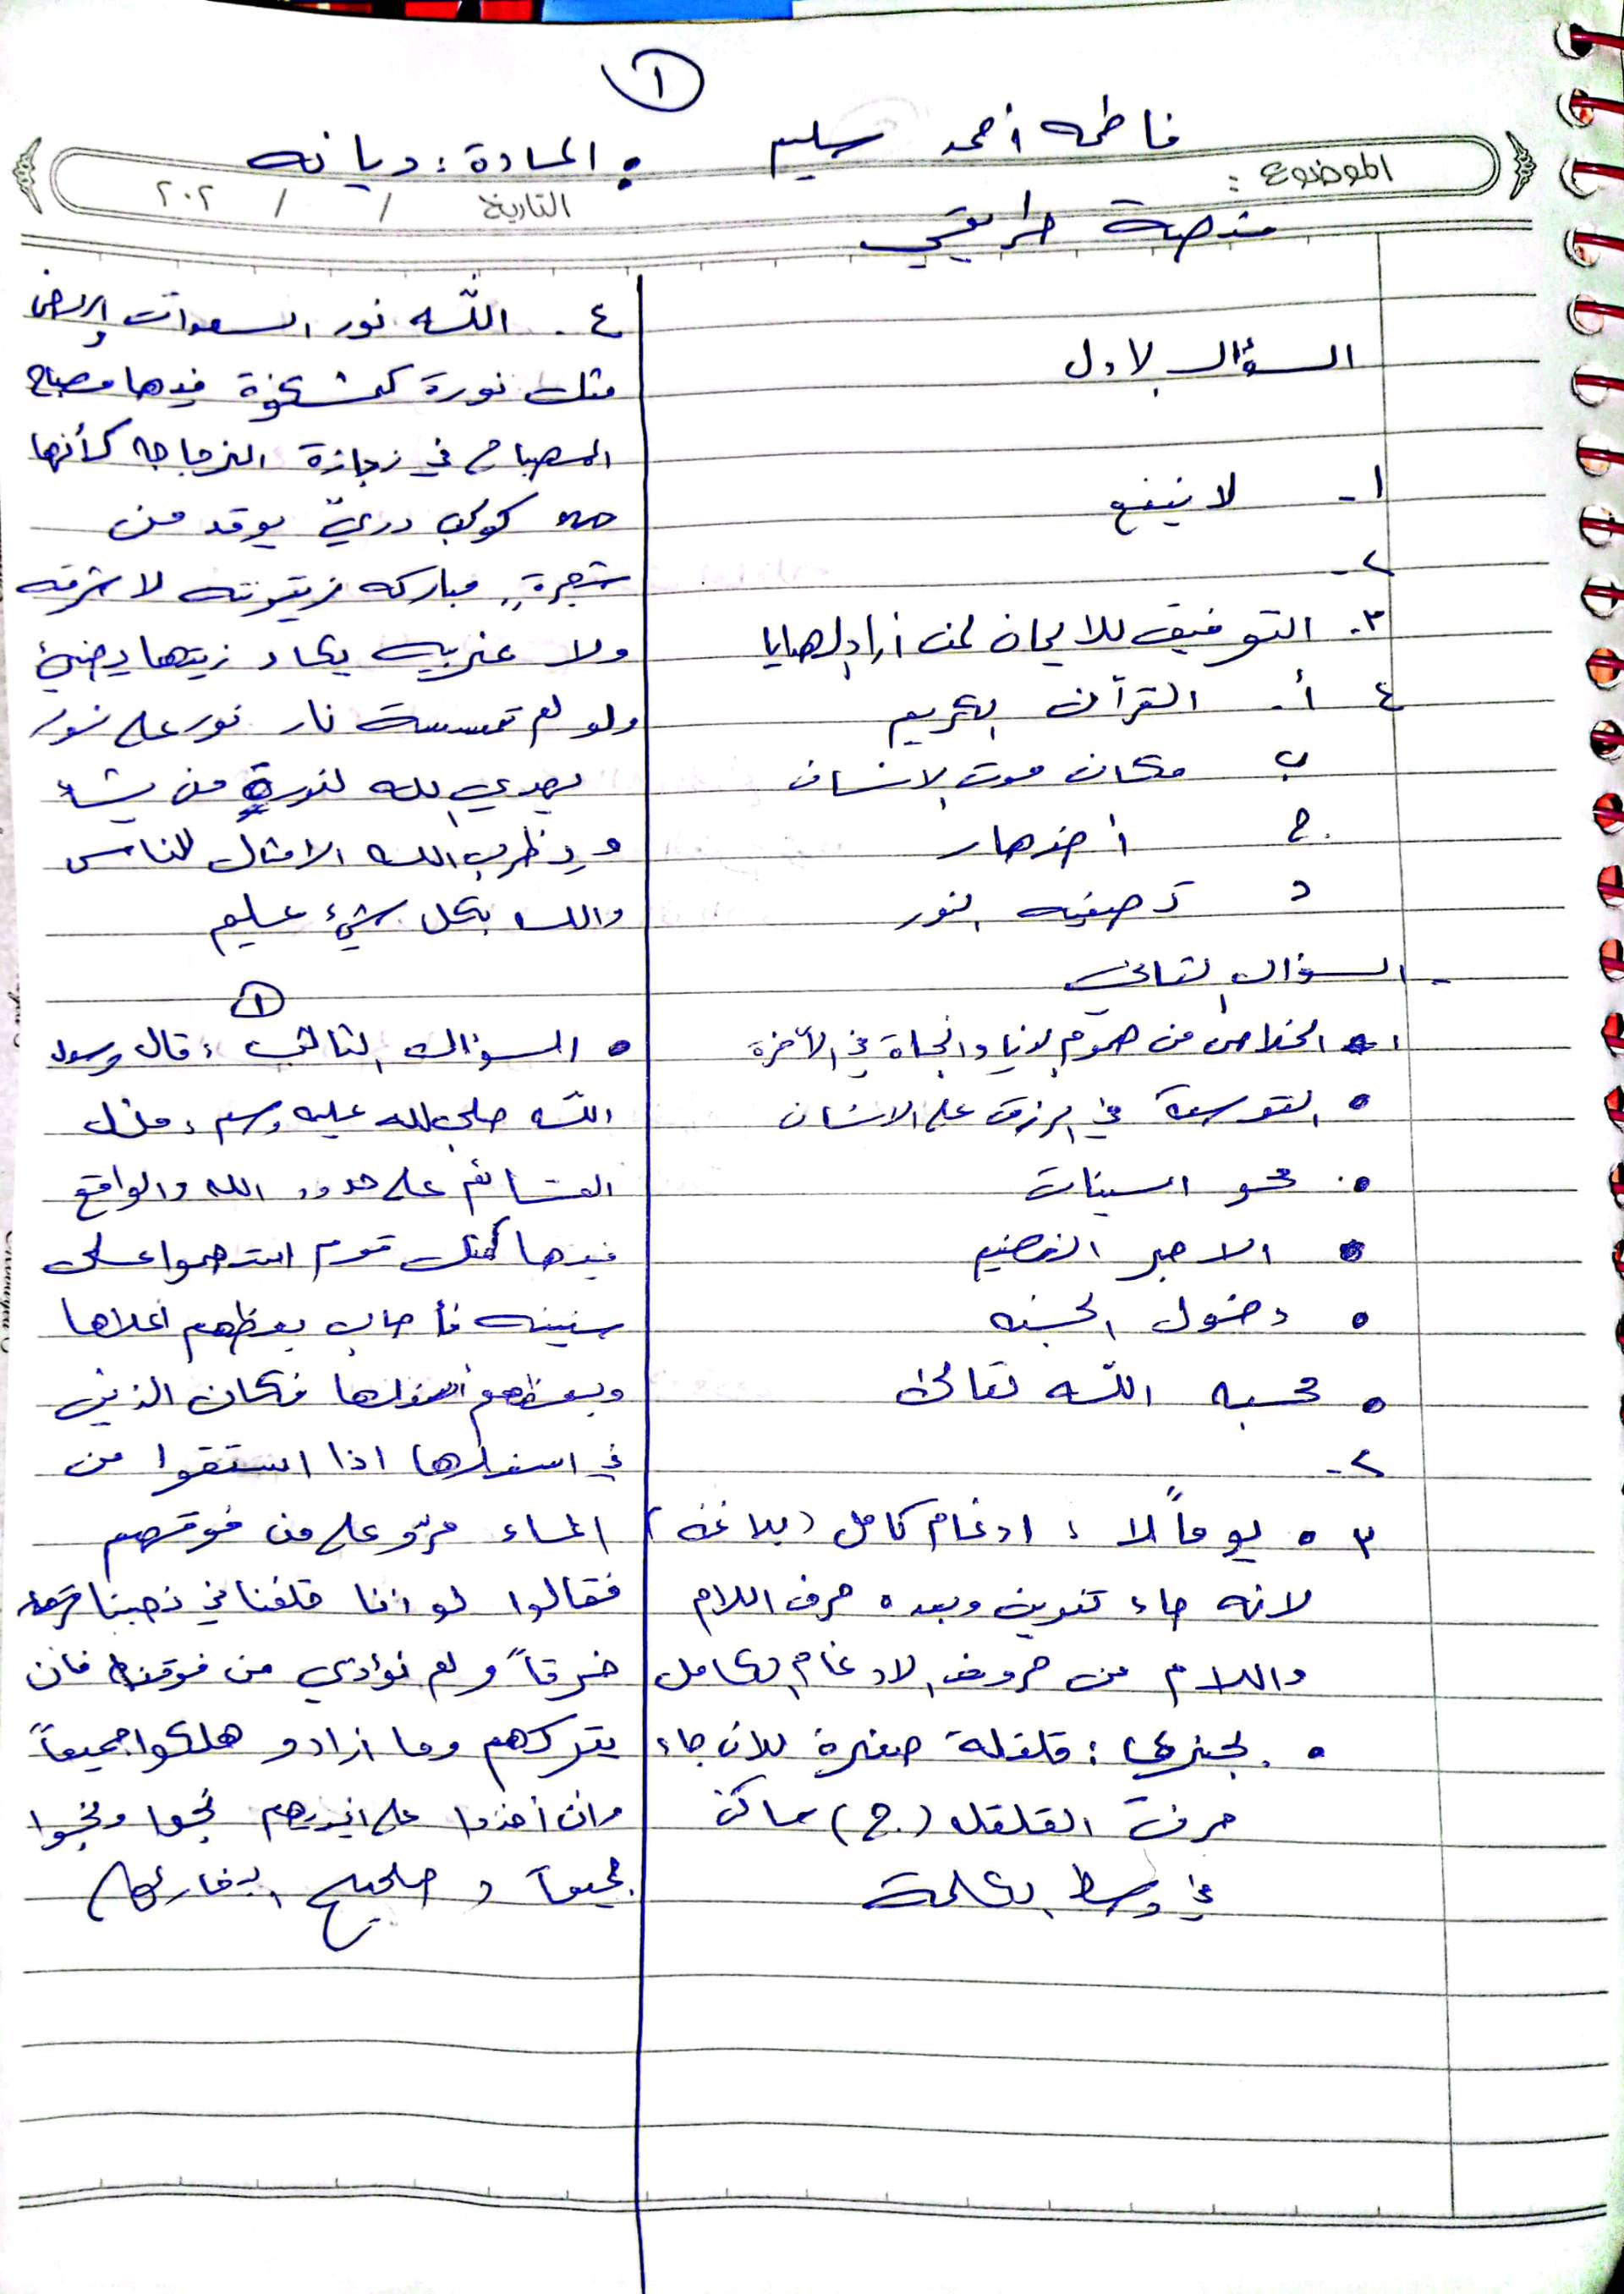 ١
فاطمه أحمد سليم
المادة : ديانه
الموضوع :
التاريخ / / ٢٠٢
منصة طريقي
السؤال الاول
١- لا ينفع
٢-
٣. التوفيق للايمان لمن أراد الهدايا
٤ أ. القرآن الكريم
ب مكان موت الانسان
ج أضهار
د تصفيه النور
- السؤال الثاني
١- الخلاص من هموم الدنيا والنجاة في الآخرة
• التوسعة في الرزق على الانسان
• محو السيئات
• الاجر العضيم
• دخول الجنه
• محبه الله تعالى
٢-
٣ • يوماً لا : ادغام كامل (بلا غنه)
لانه جاء تنوين وبعده حرف اللام
واللام من حروف الادغام الكامل
• يجزي : قلقلة صغيرة للان جاء
حرف القلقله (ج) ساكن
في وسط الكلمة
٤. الله نور السموات والارض
مثل نورة كمشكوة فيها مصباح
المصباح في زجاجة الزجاجه كأنها
كوكب دريّ يوقد من
شجرة مباركه زيتونه لا شرقه
ولا غربيه يكاد زيتها يضيئ
ولو لم تمسسة نار نور على نور
يهدي الله لنورة من يشاء
ويظرب الله الامثال للناس
والله بكل شيء عليم
١
• السؤال الثالث : قال رسول
الله صلى الله عليه وسلم : مثل
القائم على حدود الله والواقع
فيها كمثل قوم استهموا على
سفينه فأصاب بعظهم اعلاها
وبعظهم اسفلها فكان الذين
في اسفلها اذا استقوا من
الماء مرّو على من فوقهم
فقالوا لو اننا خلقنا في نصيبنا
خرقاً ولم نوأذي من فوقنا فان
يتركهم وما ارادو هلكوا جميعاً
وان أخذوا على ايديهم نجوا ونجوا
جميعاً ، صحيح البخاري